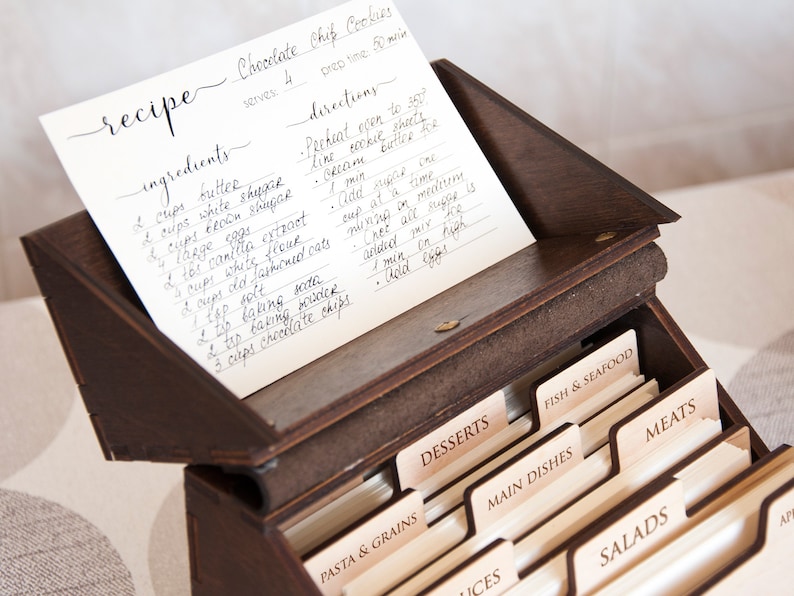 recipe Chocolate Chip Cookies
serves: 4 prep time: 50 min
ingredients
2 cups butter
2 cups white shugar
2 cups brown shugar
4 large eggs
2 tbs vanilla extract
4 cups white flour
2 cups old fashioned oats
1 tsp solt
2 tsp baking soda
2 tsp baking powder
3 cups chocolate chips
directions
• Preheat oven to 350°
line cookie sheets
• cream butter for
1 min
• Add sugar one
cup at a time
mixing on medium
• Once all sugar is
added mix for
1 min on high
• Add eggs
DESSERTS
FISH & SEAFOOD
PASTA & GRAINS
MAIN DISHES
MEATS
SALADS